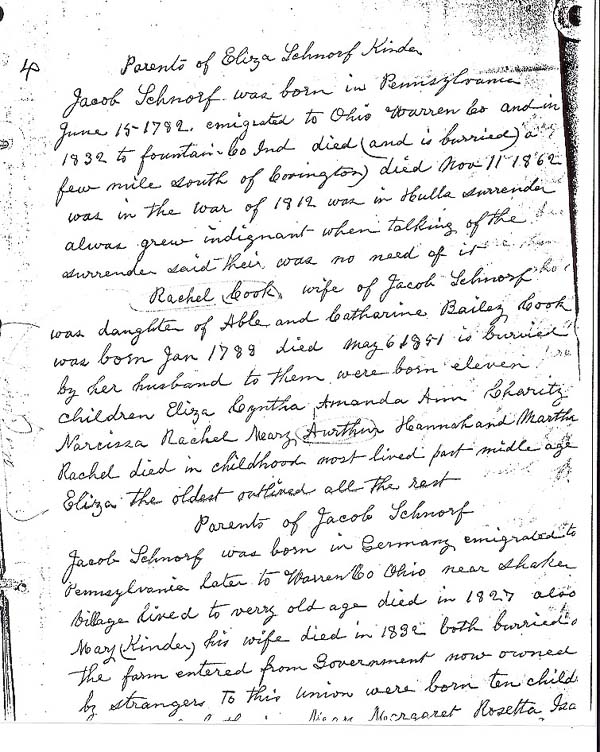 4
Parents of Eliza Schnorf Kinder
Jacob Schnorf was born in Pennsylvania
June 15-1782. emigrated to Ohio Warren Co and in
1832 to fountain-Co Ind died (and is burried) a
few mile south of Covington) died Nov-11 1862
was in the war of 1812 was in Hulls surrender
alwas grew indignant when talking of the
surrender said their was no need of it
Rachel Cook, wife of Jacob Schnorf
was daughter of Able and Catharine Bailey Cook
was born Jan 1788 died May 6 1851 is burried
by her husband to them were born eleven
children Eliza Cyntha Amanda Ann Charity
Narcissa Rachel Mary Aurthur Hannah and Martha
Rachel died in childhood most lived past midle age
Eliza the oldest outlived all the rest
Parents of Jacob Schnorf
Jacob Schnorf was born in Germany emigrated to
Pennsylvania Later to Warren Co Ohio near Shaker
Village lived to verry old age died in 1827 also
Mary (Kinder) his wife died in 1832 both burried
the farm entered from Government now owned
by strangers To this union were born ten child
Margaret Rosetta Isa